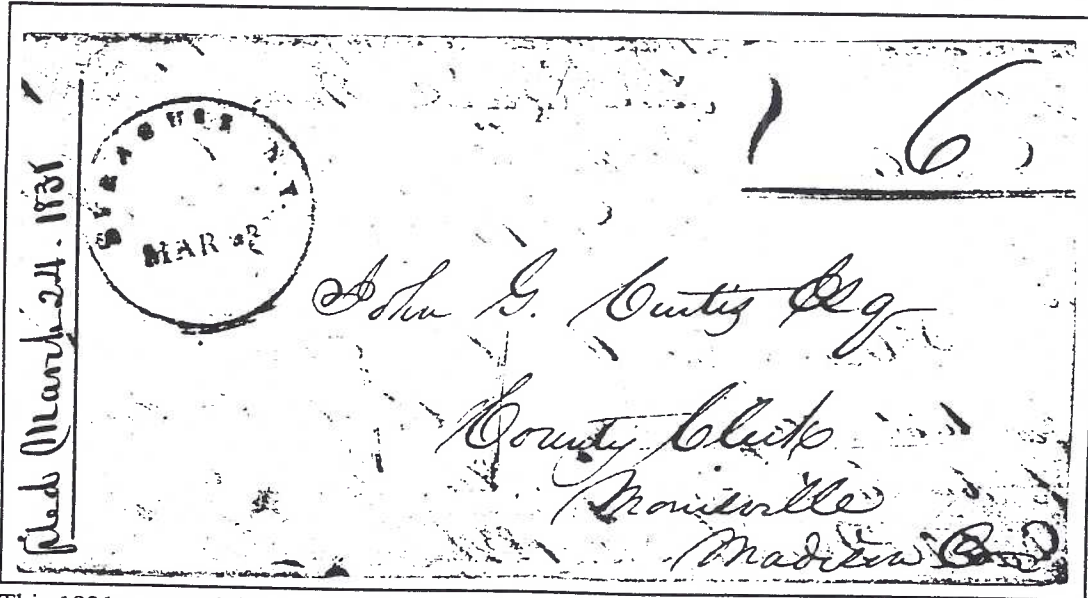 filed March 24. 1831
SYRACUSE N.Y.
MAR
6
John G. Curtis Esq
County Clerk
Morrisville
Madison Co
This 1831